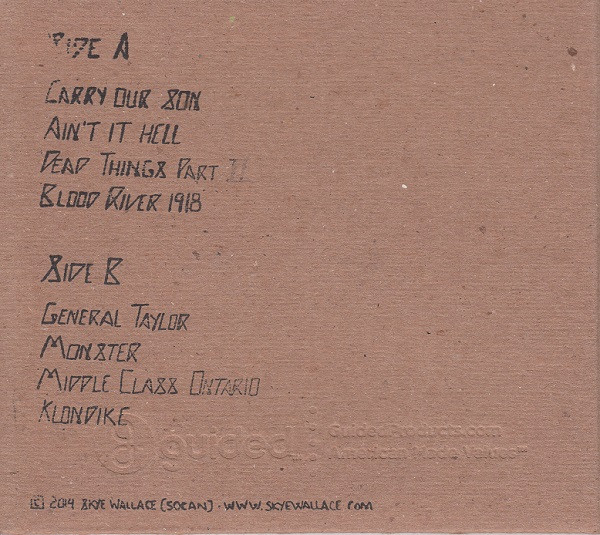 SIDE A
CARRY OUR SON
AIN'T IT HELL
DEAD THINGS PART II
BLOOD RIVER 1918
SIDE B
GENERAL TAYLOR
MONSTER
MIDDLE CLASS ONTARIO
KLONDIKE
guided
GuidedProducts.com
American Made Values
© 2014 SKYE WALLACE (SOCAN) · WWW.SKYEWALLACE.COM